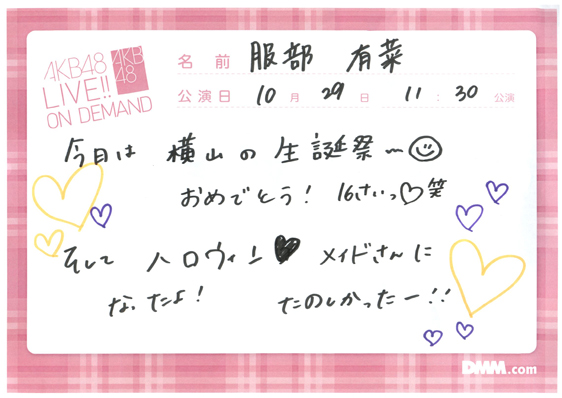 AKB48
LIVE!!
ON DEMAND
AKB
48
名前 服部 有菜
公演日 10月 29日 11:30 公演
今日は 横山の生誕祭~
おめでとう! 16さいっ♡笑
そして ハロウィン♥ メイドさんに
なったよ! たのしかったー!!
DMM.com